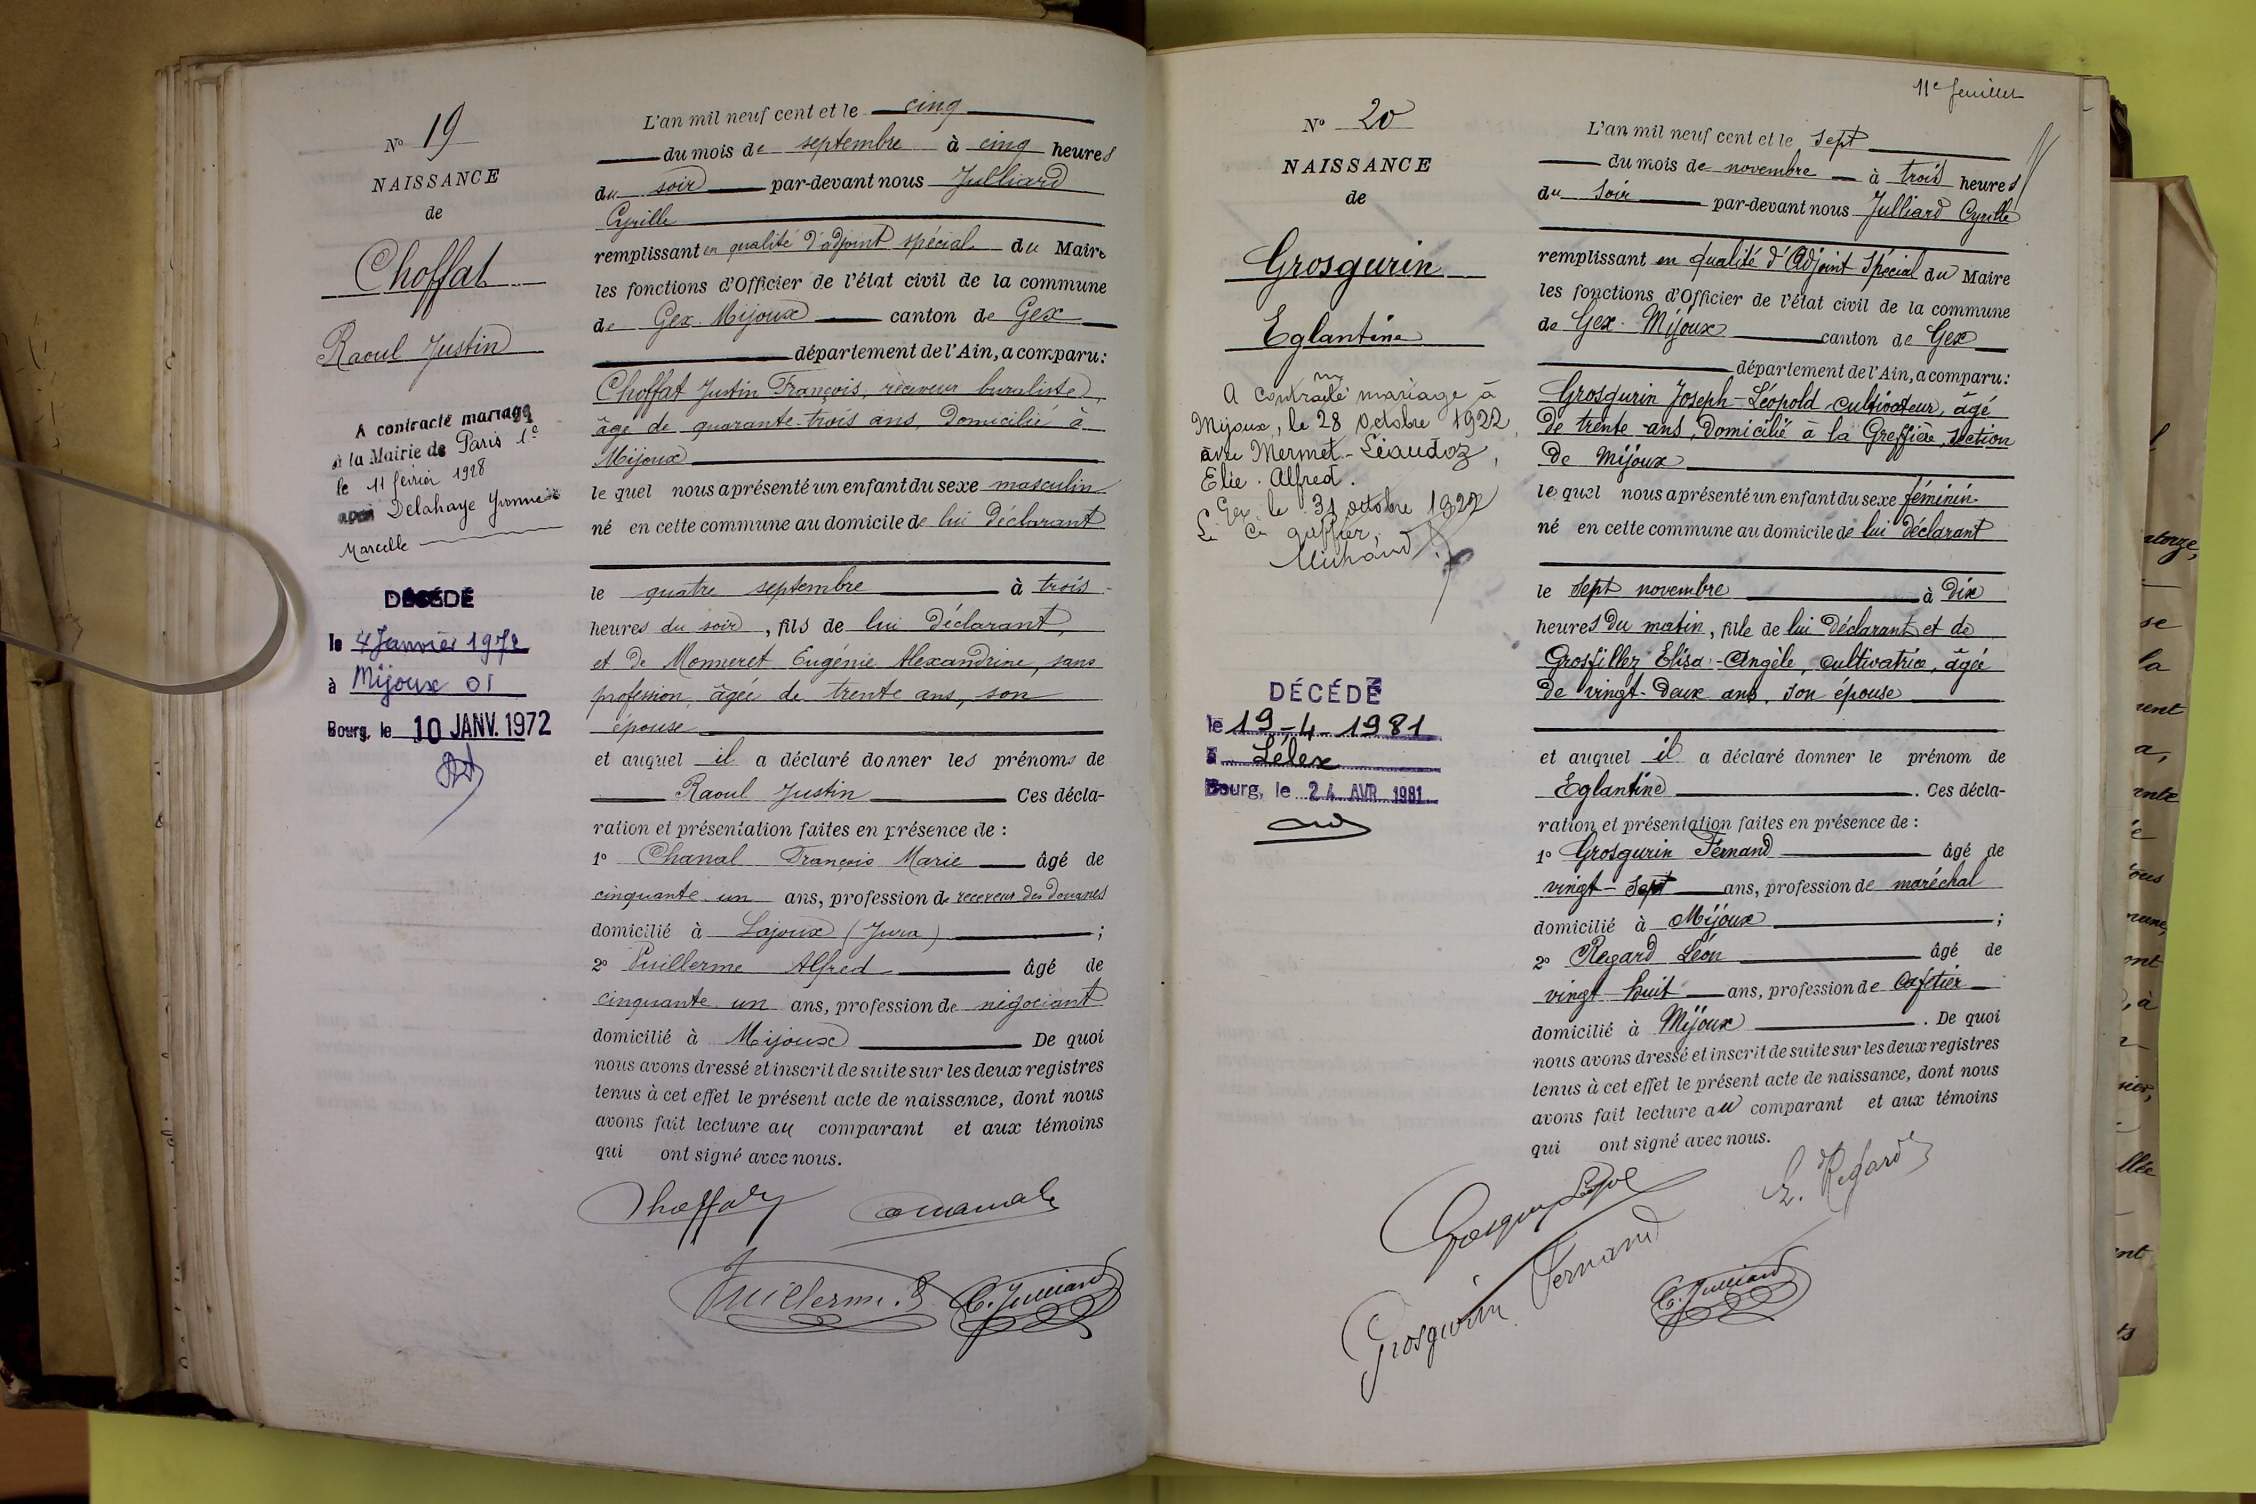 N° 19
NAISSANCE
de
Choffat
Raoul Justin
A contracté mariage
à la Mairie de Paris 1e
le 11 février 1928
avec Delahaye Yvonne
Marcelle
DÉCÉDÉ
le 4 Janvier 1972
à Mijoux 01
Bourg, le 10 JANV. 1972
L'an mil neuf cent et le cinq
du mois de septembre à cinq heures
du soir par-devant nous Julliard
Cyrille
remplissant en qualité d'adjoint spécial du Maire
les fonctions d'Officier de l'état civil de la commune
de Gex-Mijoux canton de Gex
département de l'Ain, a comparu:
Choffat Justin François, receveur buraliste,
âgé de quarante-trois ans, domicilié à
Mijoux
lequel nous a présenté un enfant du sexe masculin
né en cette commune au domicile de lui déclarant
le quatre septembre à trois
heures du soir, fils de lui déclarant,
et de Monneret Eugénie Alexandrine, sans
profession, âgée de trente ans, son
épouse
et auquel il a déclaré donner les prénoms de
Raoul Justin Ces décla-
ration et présentation faites en présence de :
1° Chanal François Marie âgé de
cinquante un ans, profession de receveur des douanes
domicilié à Lajoux (Jura) ;
2° Vuillerme Alfred âgé de
cinquante un ans, profession de négociant
domicilié à Mijoux De quoi
nous avons dressé et inscrit de suite sur les deux registres
tenus à cet effet le présent acte de naissance, dont nous
avons fait lecture au comparant et aux témoins
qui ont signé avec nous.
Choffat Chanal
Vuillerme. C. Julliard
11e feuillet
N° 20
NAISSANCE
de
Grosgurin
Eglantine
A contracté mariage à
Mijoux, le 28 octobre 1922,
avec Mermet-Liaudoz,
Elie. Alfred.
Gex le 31 octobre 1922
Le Cis greffier.
Michaud
DÉCÉDÉ
le 19-4-1981
à Lélex
Bourg, le 24 AVR 1981
L'an mil neuf cent et le sept
du mois de novembre à trois heures
du soir par-devant nous Julliard Cyrille
remplissant en qualité d'Adjoint Spécial du Maire
les fonctions d'Officier de l'état civil de la commune
de Gex-Mijoux canton de Gex
département de l'Ain, a comparu:
Grosgurin Joseph-Léopold cultivateur, âgé
de trente-ans, domicilié à la Greffière, section
de Mijoux
lequel nous a présenté un enfant du sexe féminin
né en cette commune au domicile de lui déclarant
le sept novembre à dix
heures du matin, fille de lui déclarant et de
Grosfilley Elisa-Angèle, cultivatrice, âgée
de vingt-deux ans, son épouse
et auquel il a déclaré donner le prénom de
Eglantine . Ces décla-
ration et présentation faites en présence de :
1° Grosgurin Fernand âgé de
vingt-sept ans, profession de maréchal
domicilié à Mijoux ;
2° Regard Léon âgé de
vingt huit ans, profession de cafetier
domicilié à Mijoux . De quoi
nous avons dressé et inscrit de suite sur les deux registres
tenus à cet effet le présent acte de naissance, dont nous
avons fait lecture au comparant et aux témoins
qui ont signé avec nous.
Grosgurin Léopol L. Regard
Grosgurin Fernand
C. Julliard